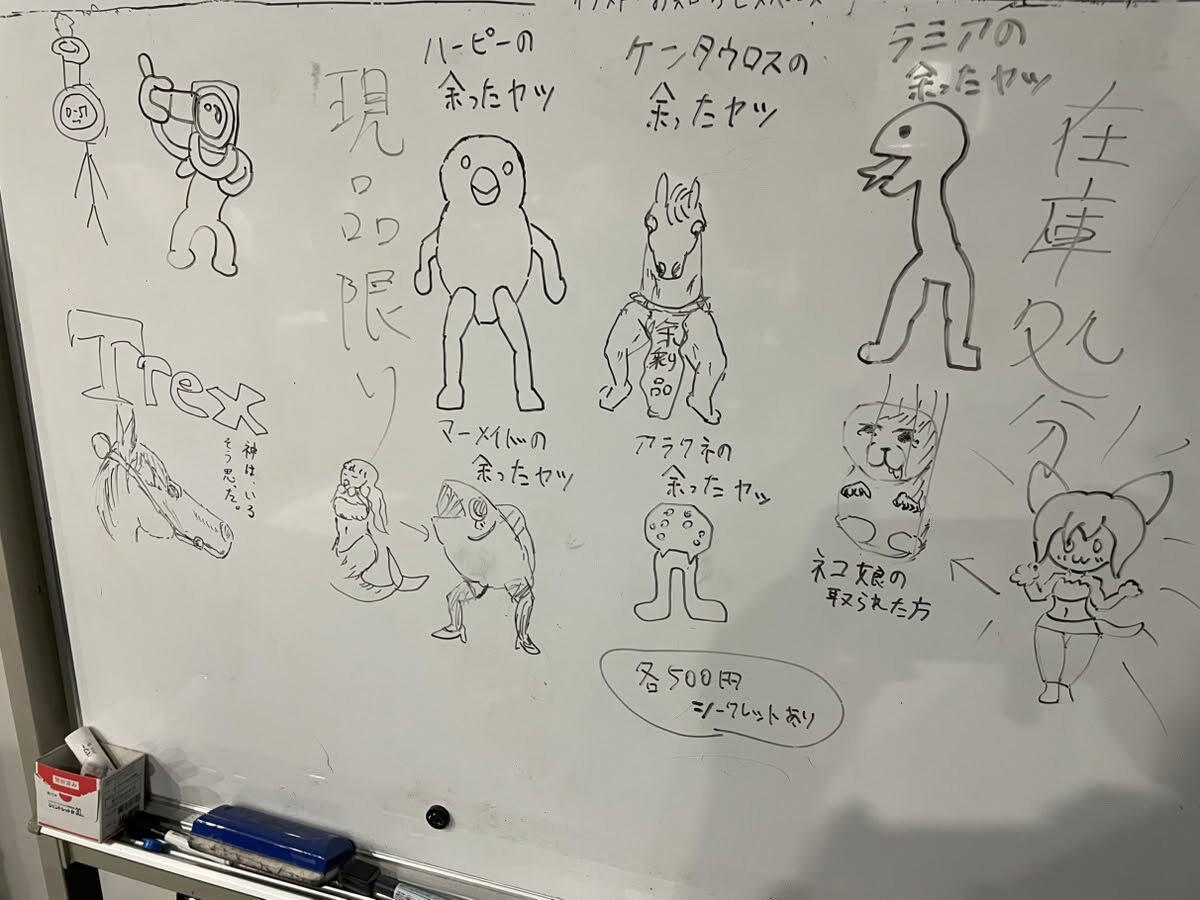 ハーピーの
余ったヤツ
ケンタウロスの
余ったヤツ
ラミアの
余ったヤツ
現品限り
在庫処分
Trex
神は、いる
そう思った。
マーメイドの
余ったヤツ
アラクネの
余ったヤツ
余剰品
ネコ娘の
取られた方
各500円
シークレットあり